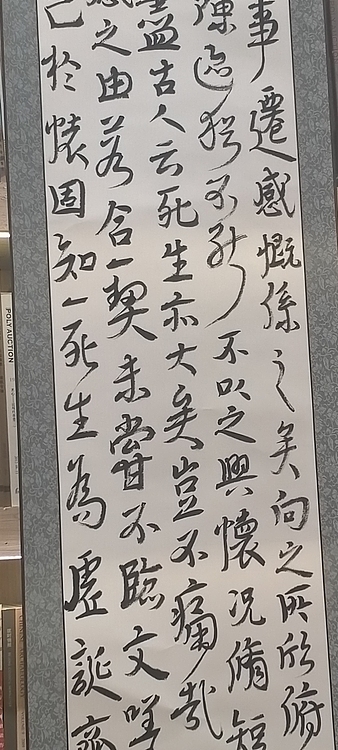 事遷感慨係之矣向之所欣俯
陳迹猶不能不以之興懷況脩短
盡古人云死生亦大矣豈不痛哉
之由若合一契未嘗不臨文嗟
於懷固知一死生為虛誕齊
POLY AUCTION